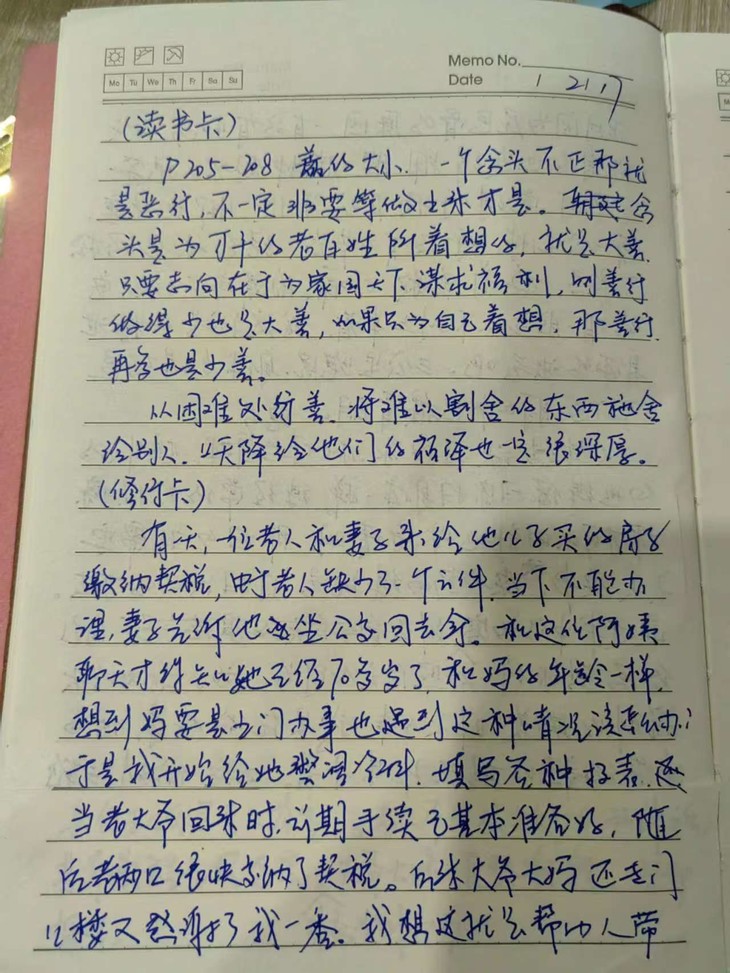 Memo No.
Mo Tu We Th Fr Sa Su
Date 1 21.17
(读书卡)
P205-208 善的大小. 一个念头不正那就
是恶行,不一定非要等做出来才是。念
头是为了千的老百姓所着想的,就是大善.
只要志向在于为家国天下谋求福利,则善行
做得少也是大善,如果只为自己着想,那善行
再多也是少善。
从困难处行善.将难以割舍的东西施舍
给别人.上天降给他们的福泽也一定很深厚。
(修行卡)
有天,一位老人和妻子来给他儿子买的房子
缴纳契税,由于老人缺少了一个证件.当下不能办
理,妻子告诉他坐公交回去拿。和这位阿姨
聊天才得知她已经70多岁了,和妈的年龄一样,
想到妈要是出门办事也遇到这种情况该怎么办?
于是我开始给她整理资料.填写各种报表.
当老大爷回来时,前期手续已基本准备好,随
后老两口很快交纳了契税。后来大爷大妈还专门
上楼又感谢了我一番。我想这就是帮助人带